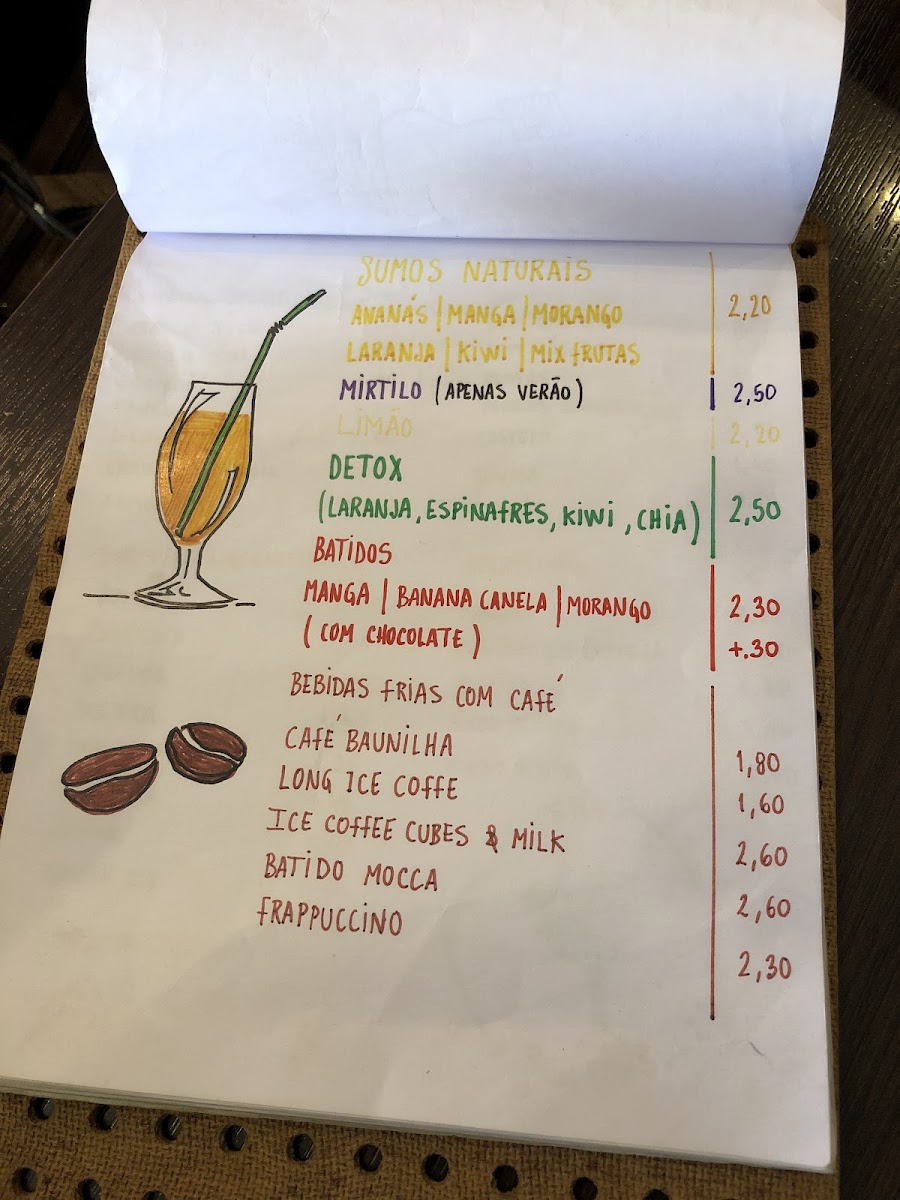 SUMOS NATURAIS
ANANÁS | MANGA | MORANGO 2,20
LARANJA | KIWI | MIX FRUTAS
MIRTILO (APENAS VERÃO) 2,50
LIMÃO 2,20
DETOX
(LARANJA, ESPINAFRES, KIWI, CHIA) 2,50
BATIDOS
MANGA | BANANA CANELA | MORANGO 2,30
(COM CHOCOLATE) +.30
BEBIDAS FRIAS COM CAFÉ
CAFÉ BAUNILHA 1,80
LONG ICE COFFE 1,60
ICE COFFEE CUBES & MILK 2,60
BATIDO MOCCA 2,60
FRAPPUCCINO 2,30